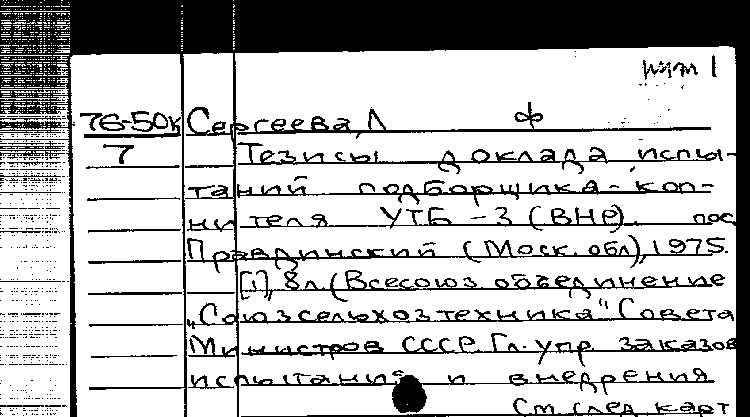 шт 1
76-50к Сергеева, Л ф
7 Тезисы доклада испы-
таний подборщика-коп-
нителя УТБ-3 (ВНР). пос.
Правдинский (Моск. обл), 1975.
[1], 8л (Всесоюз. объединение
„Союзсельхозтехника" Совета
Министров СССР. Гл. упр. заказов
испытания и внедрения
См. след. карт